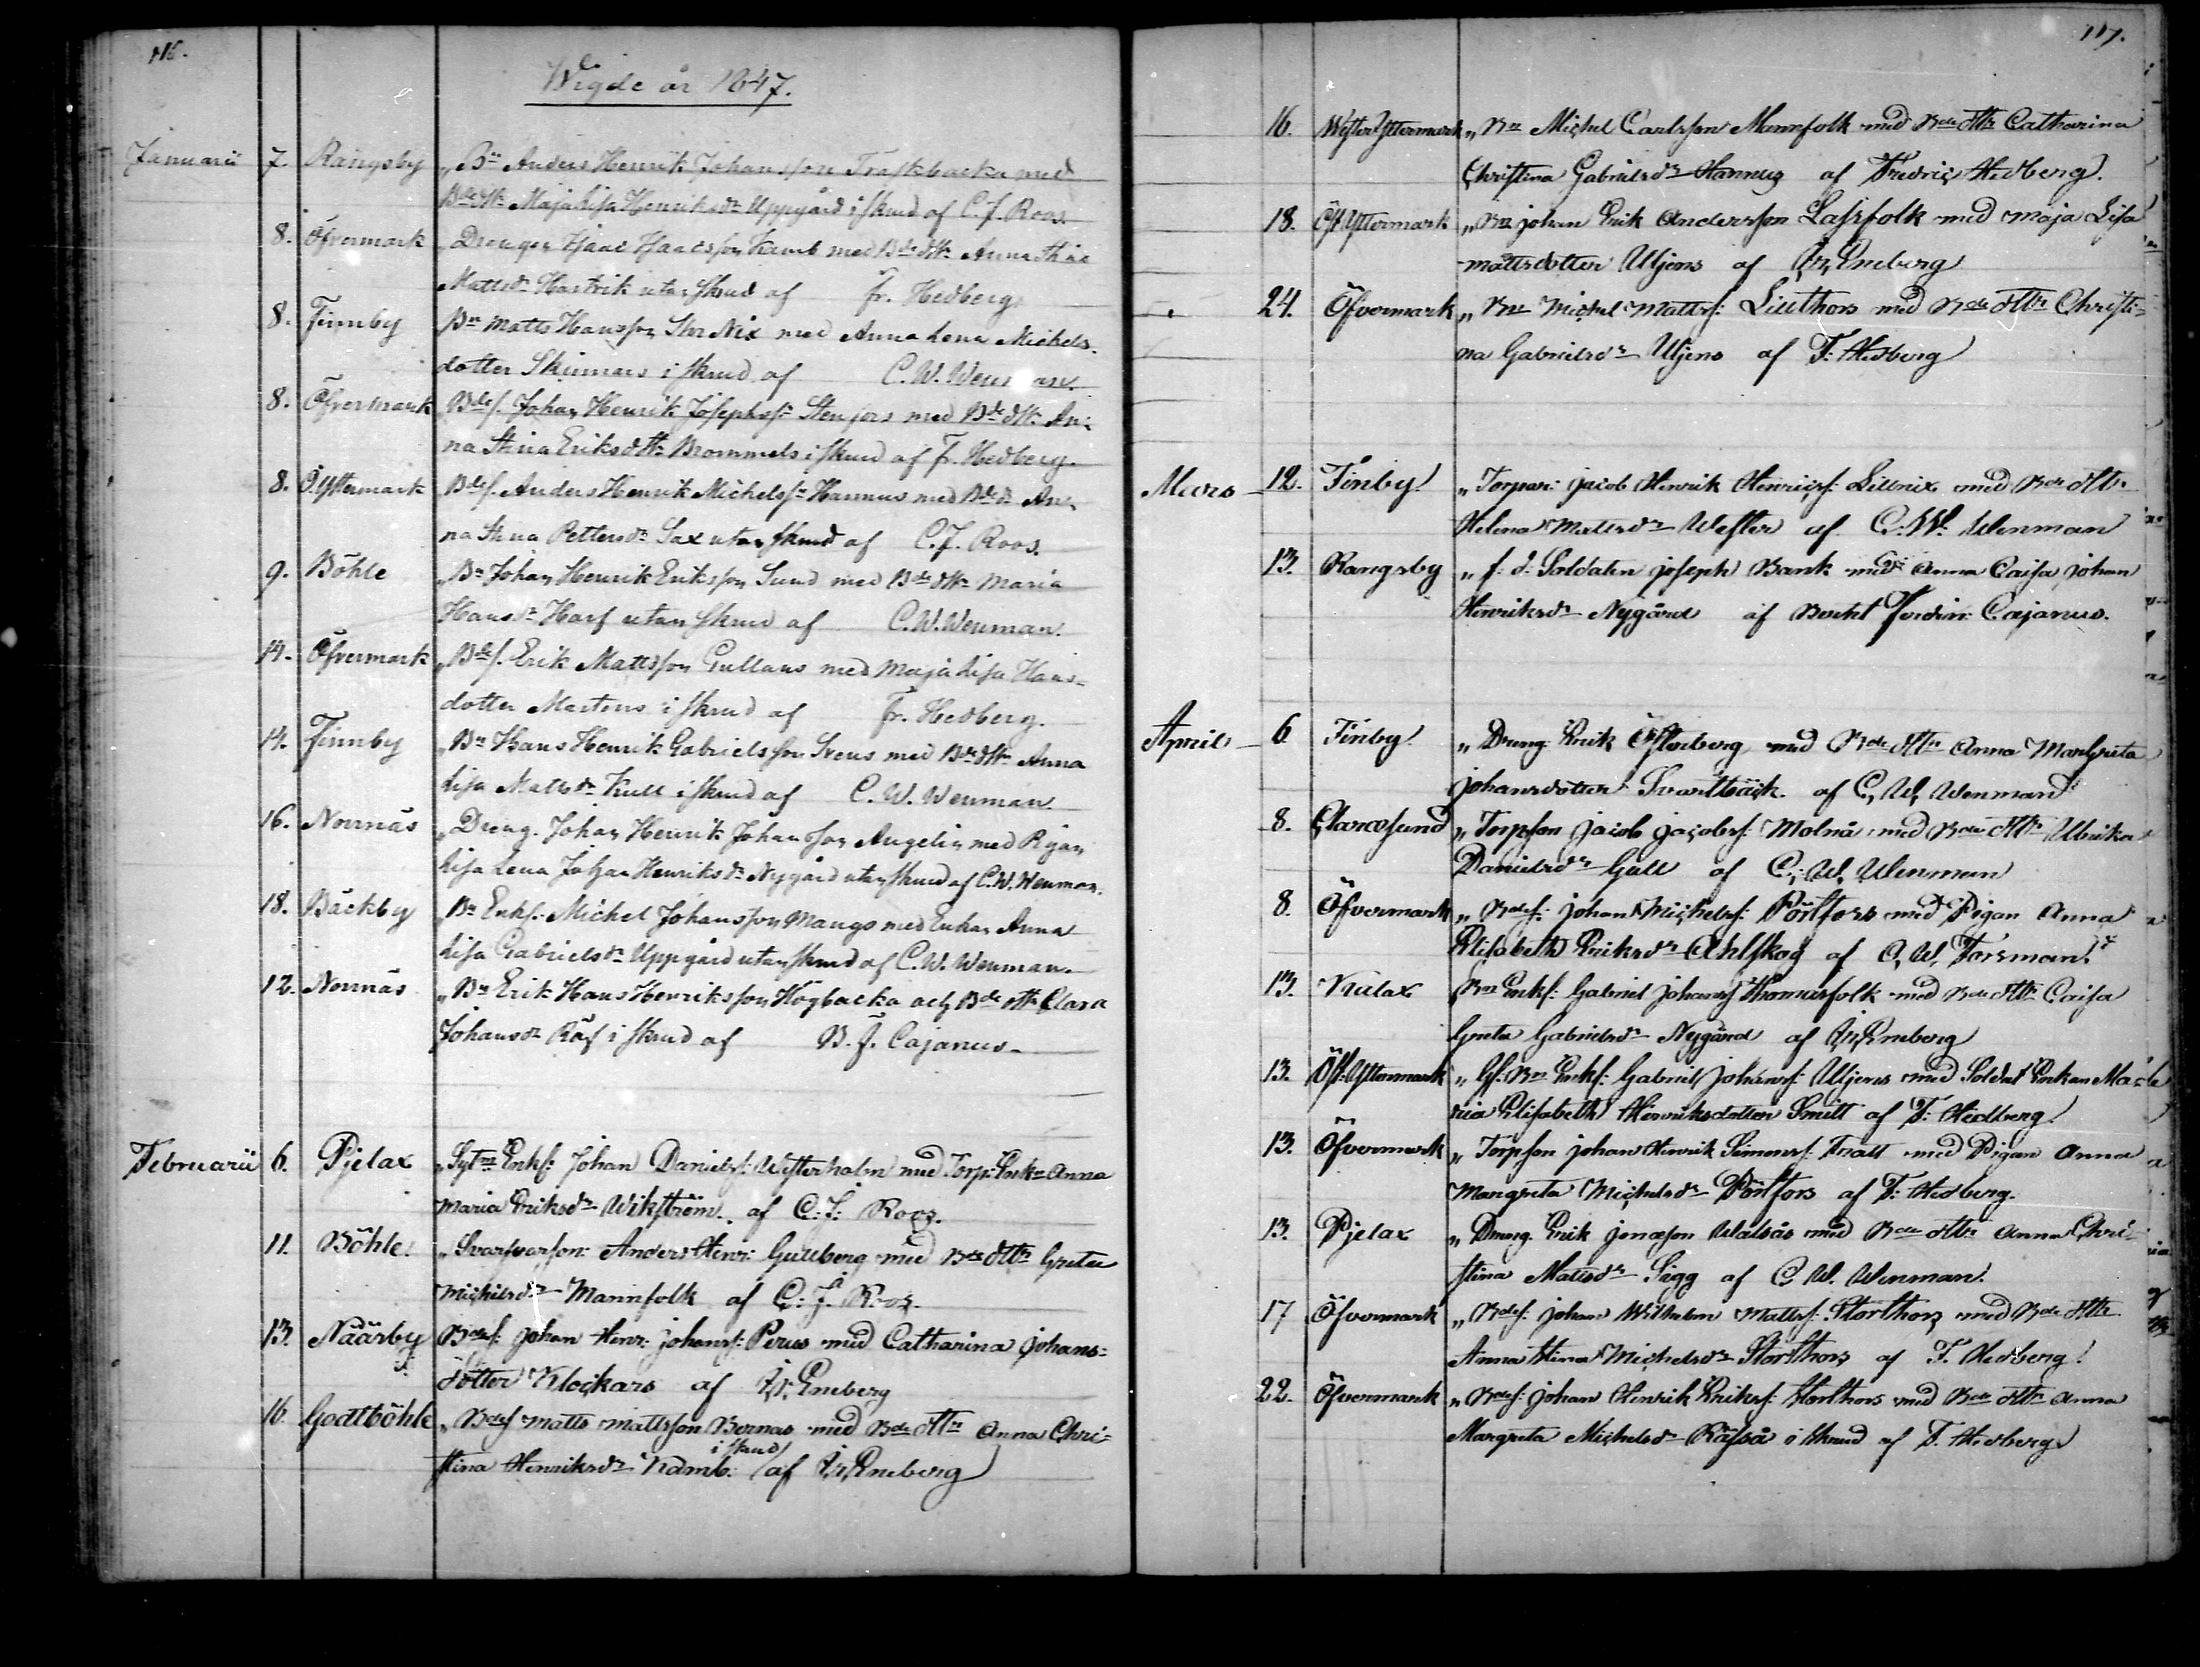 116.
Wigde år 1847.
Januarii 7. Rängsby „Bn Anders Henrik Johansson Träskbacka med
Bdedttr Maja Lisa Henriksdr Uppgård i skrud af C. J. Roos
8. Öfvermark „Drengen Isaac Isaacsson Kamb med Bdedttr Anna Stina
Mattsdr Hartvik utan skrud af Fr. Hedberg
8. Finnby Bn Matts Hansson Stor Nix med Anna Lena Michels-
dotter Skinnars i skrud af C. W. Wenman.
8. Öfvermark Bdes. Johan Henrik Josephss. Stenfors med Bdedttr An-
na Stina Eriksdttr Brommels i skrud af F. Hedberg.
8. Ö. Yttermark Bdes. Anders Henrik Michelss. Hannus med Bdedr An-
na Stina Pettersdr Sax utan skrud af C. J. Roos.
9. Böhle „Bn Johan Henrik Eriksson Sund med Bdedttr Maria
Hansdr Harf utan skrud af C. W. Wenman.
14. Öfvermark „Bdes. Erik Mattsson Gullans med Maja Lisa Hans-
dotter Martens i skrud af Fr. Hedberg.
14. Finnby „Bn Hans Henrik Gabrielsson Svens med Bdedttr Anna
Lisa Mattsdr Kull i skrud af C. W. Wenman
16. Norrnäs „Dreng. Johan Henrik Johansson Angelin med Pigan
Lisa Lena Johan Henriksdr Nygård utan skrud af C. W. Wenman.
18. Bäckby „Bn Enkl. Michel Johansson Mangs med Enkan Anna
Lisa Gabrielsdr Uppgård utan skrud af C. W. Wenman.
12. Norrnäs „Bn Erik Hans Henriksson Högbacka och Bdedttr Clara
Johansdr Räf i skrud af B. F. Cajanus.
Februarii 6. Pjelax „Sytn Enkl: Johan Danielss. Westerholm med Torp: Enkn Anna
Maria Eriksdr Wikström. af C: J: Roos.
11. Böhle. „Svarfvarson: Anders Henr: Gullberg med Bdedttr Greta
Michelsdr Mannfolk af C: J. Roos.
13. Näärby Bdes: Johan Henr: Johanss: Perus med Catharina Johans=
dotter Klockars af Eneberg
16. Godtböhle „Bdes Matts Mattsson Bernas med Bdedttr Anna Chri=
stina Henriksdr Kamb: i skrud af Eneberg
117.
16. Wester Yttermark „Bn Michel Carlsson Mannfolk med Bdedttr Catharina
Christina Gabrielsdr Hannus af Fredric Hedberg.
18. Öst Yttermark „Bn Johan Erik Andersson Lassfolk med Maja Lisa
Mattsdotter Uljens af Eneberg
24. Öfvermark „Bn Michel Mattss: Lillthors med Bdedttr Christi=
na Gabrielsdr Uljens af F: Hedberg
Mars 12. Finby. „Torpar: Jacob Henrik Henricss: Lillnix med Bdedttr
Helena Mattsdr Wester af C: W: Wenman
13. Rangsby „f. d. Soldaten Joseph Bank med Anna Caisa Johan
Henriksdr Nygård af Berthl Ferdin: Cajanus.
April 6 Finby. „Dreng Erik Österberg med Bdedttr Anna Margreta
Johansdotter Svartbäck. af C, W, Wenman
8. Claresund „Torpson Jacob Jacobss: Molnå med Bdedttr Ulrika
Danielsdr Gull af C: W, Wenman
8. Öfvermark „Bdes: Johan Michelss: Pörtfors med Pigan Anna
Elisabeth Eriksdr Ahlskog af O, W, Forsman.
13. Kulax Bn Enkl: Gabriel Johanss Thomasfolk med Bdedttr Caisa
Greta Gabrielsdr Nygård af Eneberg
13. Öst: Yttermark „Gl: Bn Enkl: Gabriel Johanss: Uljens med Soldat Enkan Ma=
ria Elisabeth Henriksdotter Smitt af F: Hedberg
13. Öfvermark „Torpson Johan Henrik Simonss: Tratt med Pigan Anna
Margreta Michelsdr Pörtfors af F: Hedberg.
13. Pjelax „Dreng Erik Jonasson Walsås med Bdedttr Anna Chri=
stina Mattsdr Sigg af C W. Wenman.
17 Öfvermark „Bdes: Johan Wilhelm Mattss: Storthors med Bdedttr
Anna Stina Michelsdr Storthors af F. Hedberg.
22. Öfvermark „Bdes: Johan Henrik Erikss: Storthors med Bdedttr Anna
Margreta Michelsdr Räfså i skrud af F. Hedberg